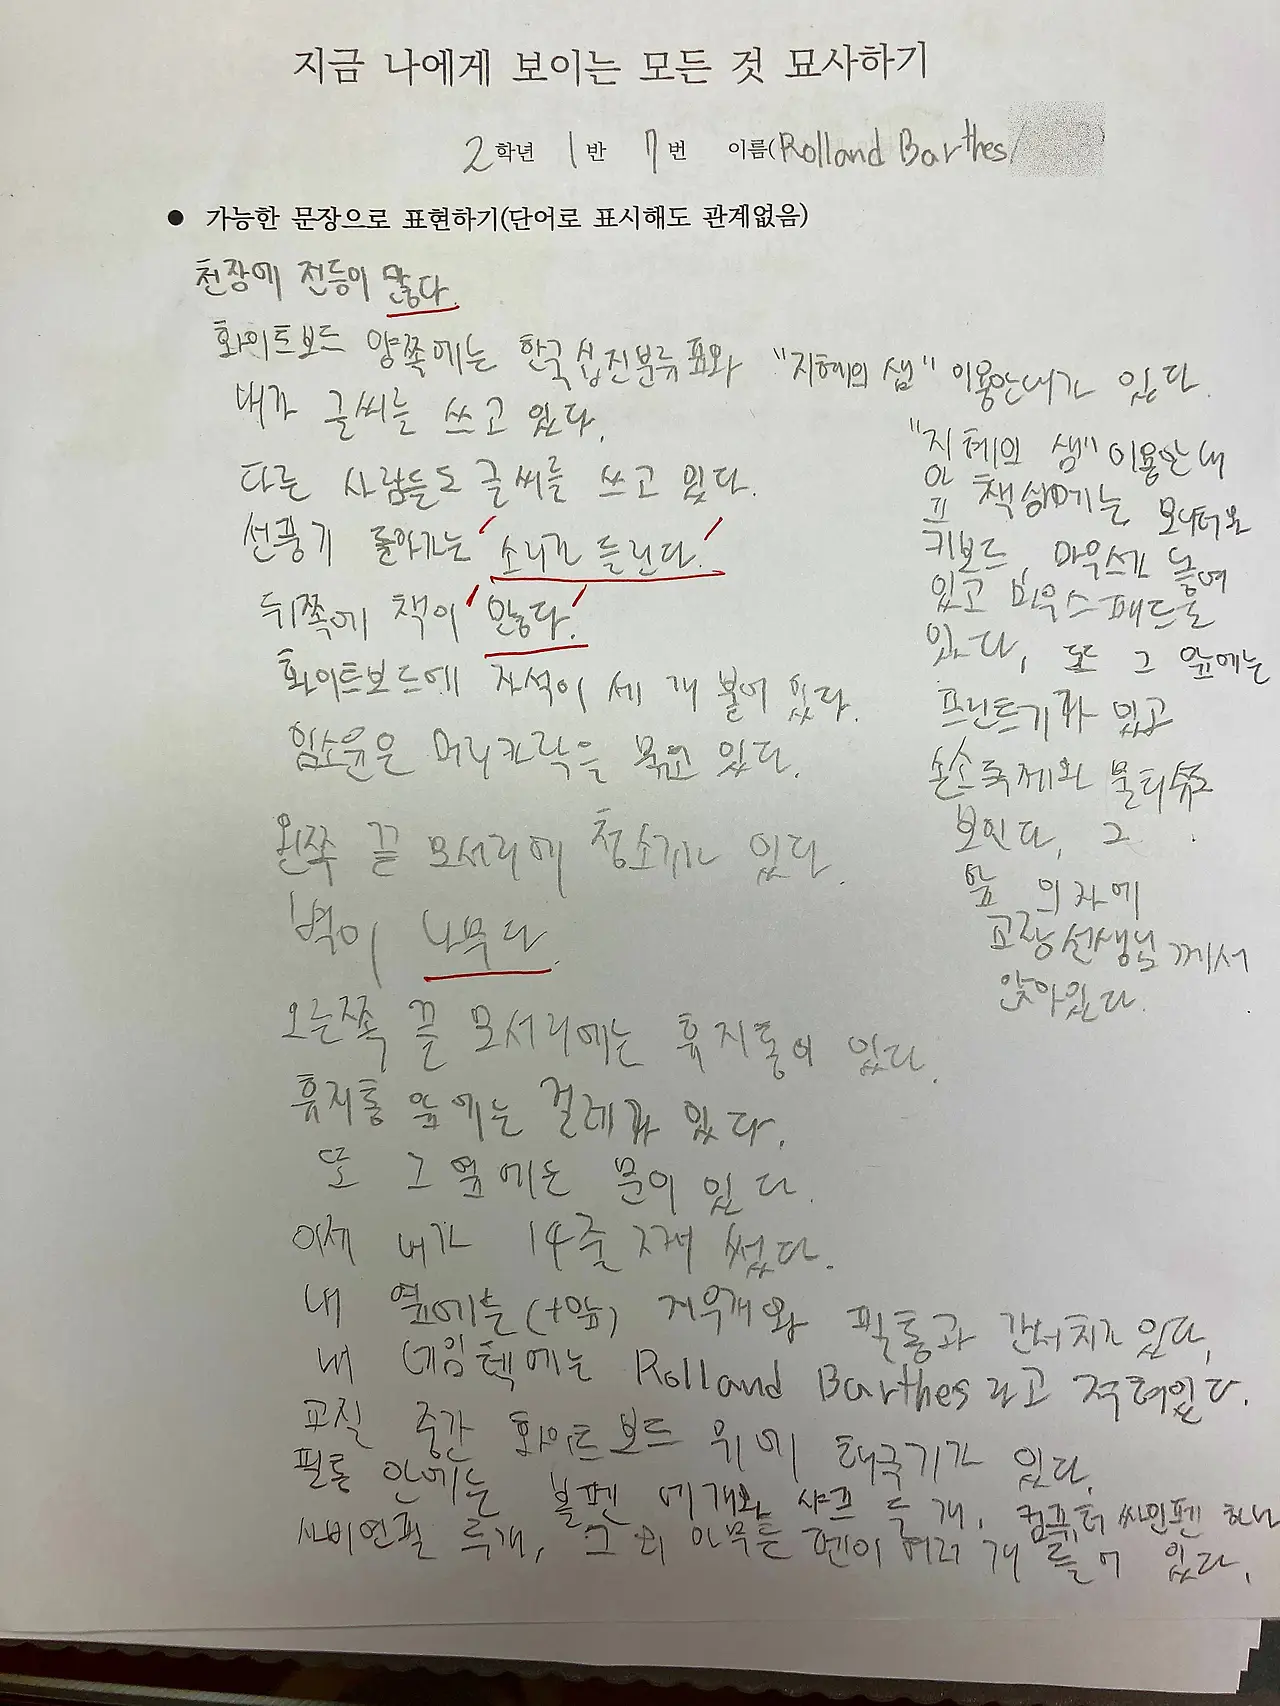 지금 나에게 보이는 모든 것 묘사하기
2학년 1반 7번 이름(Rolland Barthes/
● 가능한 문장으로 표현하기(단어로 표시해도 관계없음)
천장에 전등이 많다.
화이트보드 양쪽에는 한국십진분류표와 "지혜의 샘" 이용안내가 있다.
내가 글씨를 쓰고 있다.
다른 사람들도 글씨를 쓰고 있다.
선풍기 돌아가는 '소리가 들린다.'
뒤쪽에 책이 '많다.'
화이트보드에 자석이 세 개 붙어 있다.
임소윤은 머리카락을 묶고 있다.
왼쪽 끝 모서리에 청소기가 있다.
벽이 나무다.
오른쪽 끝 모서리에는 휴지통이 있다.
휴지통 앞에는 걸레가 있다.
또 그 옆에는 문이 있다.
이제 내가 14줄 째 썼다.
내 옆에는(+앞) 지우개와 필통과 간식치가 있다.
내 네임텍에는 Rolland Barthes라고 적혀있다.
교실 중간 화이트보드 위에 태극기가 있다.
필통 안에는 볼펜 네개와 샤프 두 개, 컴퓨터 싸인펜 하나
색연필 두개, 그 외 아무튼 펜이 여러 개 들어 있다.
"지혜의 샘" 이용안내
앞 책상에는 모니터와
키보드, 마우스가 놓여
있고 마우스패드도
있다, 또 그 앞에는
프린트기가 있고
손소독제와 물티슈도
보인다, 그
앞 의자에
교장선생님께서
앉아있다.